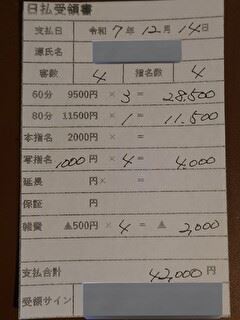 日払受領書
支払日 令和 7 年 12 月 14 日
源氏名
客数 4 指名数 4
60分 9500円 × 3 = 28,500
80分 11500円 × 1 = 11,500
本指名 2000円 × =
写指名 1000円 × 4 = 4,000
延長 円× =
保証 円
雑費 ▲500円 × 4 = ▲ 2,000
支払合計 42,000 円
受領サイン